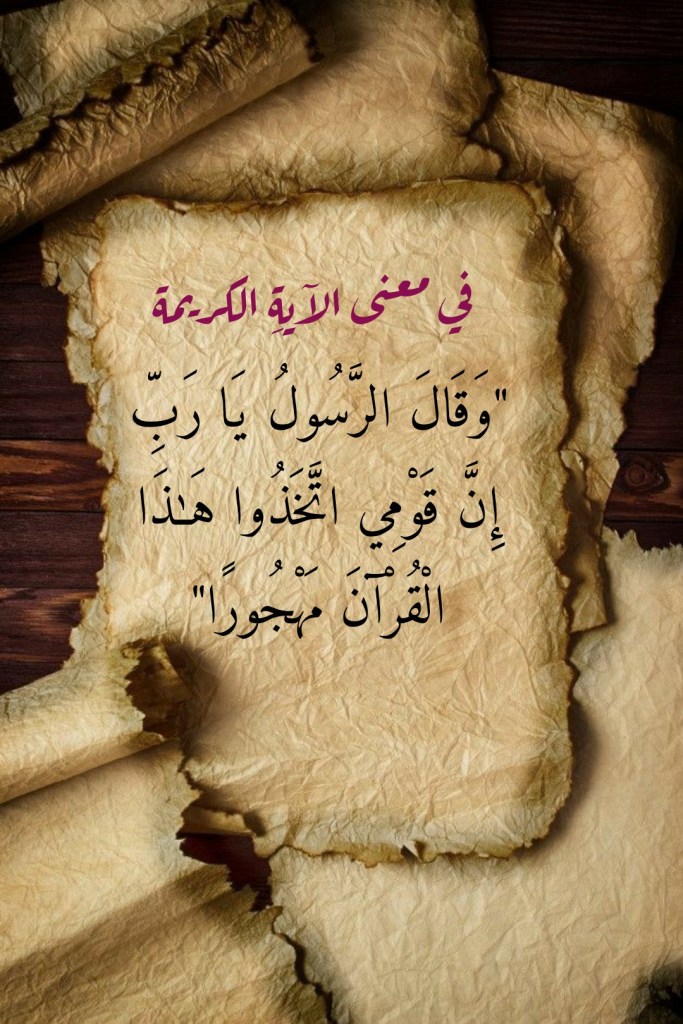 في معنى الآيةِ الكريمة
"وَقَالَ الرَّسُولُ يَا رَبِّ
إِنَّ قَوْمِي اتَّخَذُوا هَـٰذَا
الْقُرْآنَ مَهْجُورًا"